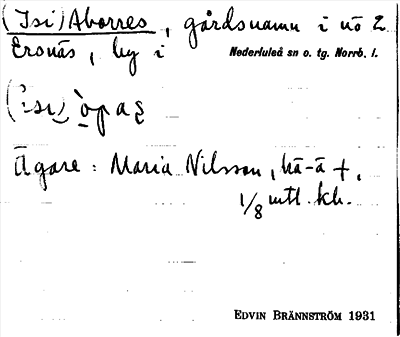 (Isi) Aborres, gårdsnamn i nö 2
Ersnäs, by i Nederluleå sn o. tg. Norrb. l.
Ägare: Maria Nilsson, hä-ä +,
1/8 mtl. kh.
EDVIN BRÄNNSTRÖM 1931